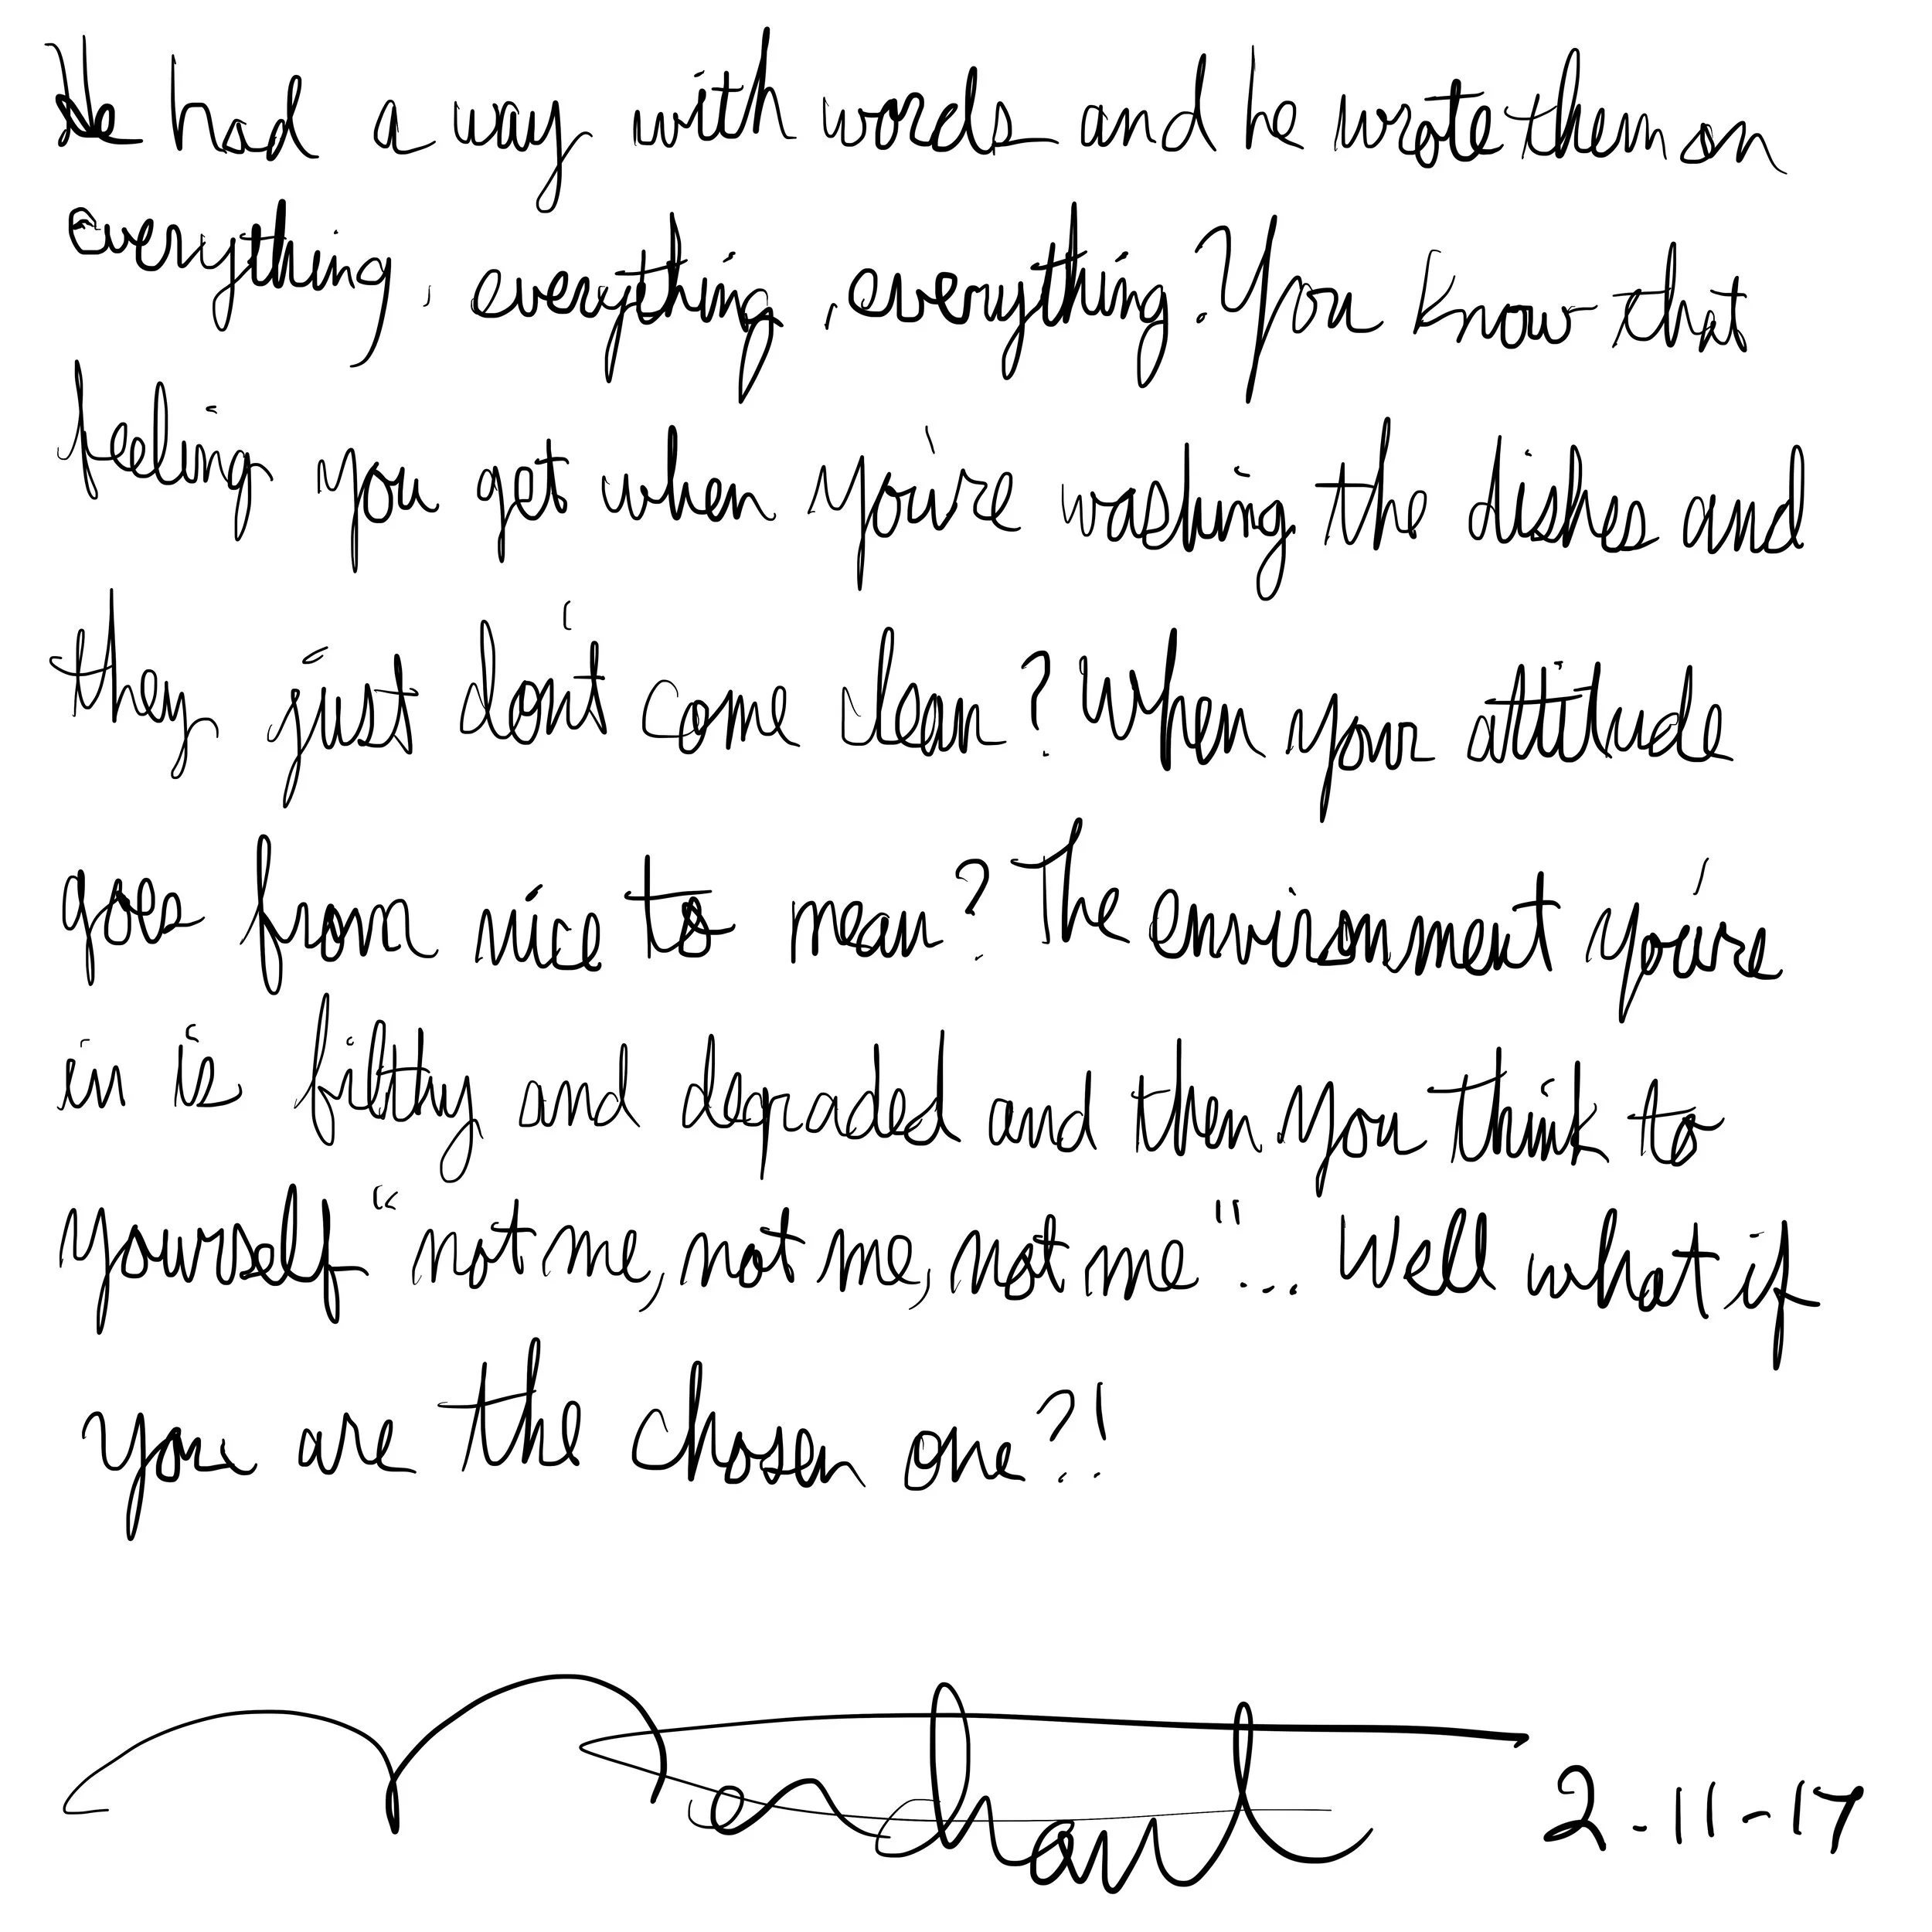 He had a way with words and he wrote them on
everything, everything, everything. You know that
feeling you get when you're washing the dishes and
they just don't come clean? When your attitude
goes from nice to mean? The environment you're
in is filthy and degraded and then you think to
yourself "not me, not me, not me"... Well what if
you are the chosen one?!
2-11-17